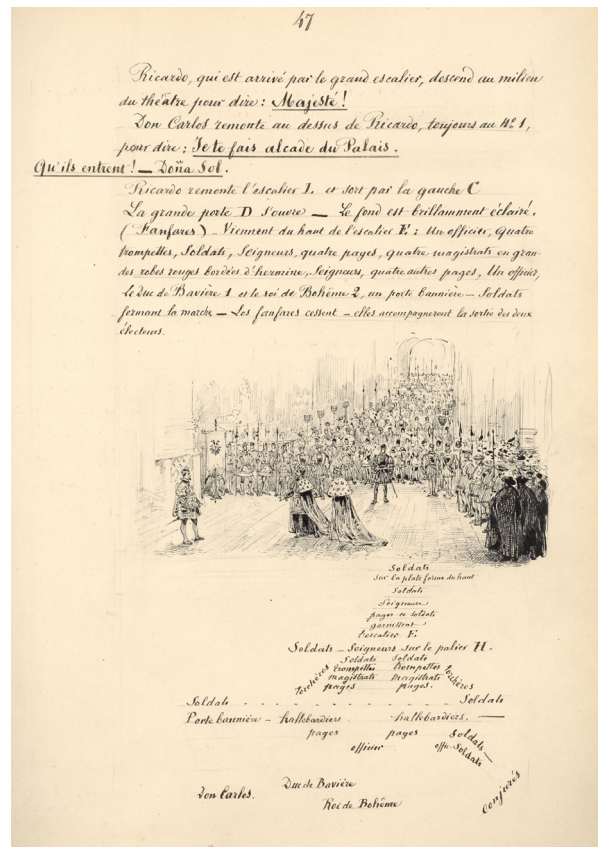 47
Ricardo, qui est arrivé par le grand escalier, descend au milieu
du théâtre pour dire : Majesté !
Don Carlos remonte au dessus de Ricardo, toujours au Nº 1,
pour dire ; Je te fais alcade du Palais.
Qu'ils entrent ! — Doña Sol.
Ricardo remonte l'escalier I. et sort par la gauche C
La grande porte D s'ouvre — Le fond est brillamment éclairé.
(Fanfares) — Viennent du haut de l'escalier E : Un officier, quatre
trompettes, Soldats, Seigneurs, quatre pages, quatre magistrats en gran-
des robes rouges bordées d'hermine, Seigneurs, quatre autres pages, Un officier,
Le Duc de Bavière 1 et le roi de Bohême 2, un porte bannière — Soldats
fermant la marche — Les fanfares cessent — elles accompagneront la sortie des deux
électeurs.
Soldats
sur la plate forme du haut
Soldats
Seigneurs
pages et soldats
garnissent
l'escalier E
Soldats — Seigneurs sur le palier H.
Soldats Soldats
torchères trompettes trompettes torchères
magistrats magistrats
pages pages.
Soldats . . . . . . . . . Soldats
Porte bannière — hallebardiers hallebardiers. —
pages pages Soldats —
officier offr. Soldats
conjurés
Don Carlos. Duc de Bavière
Roi de Bohême